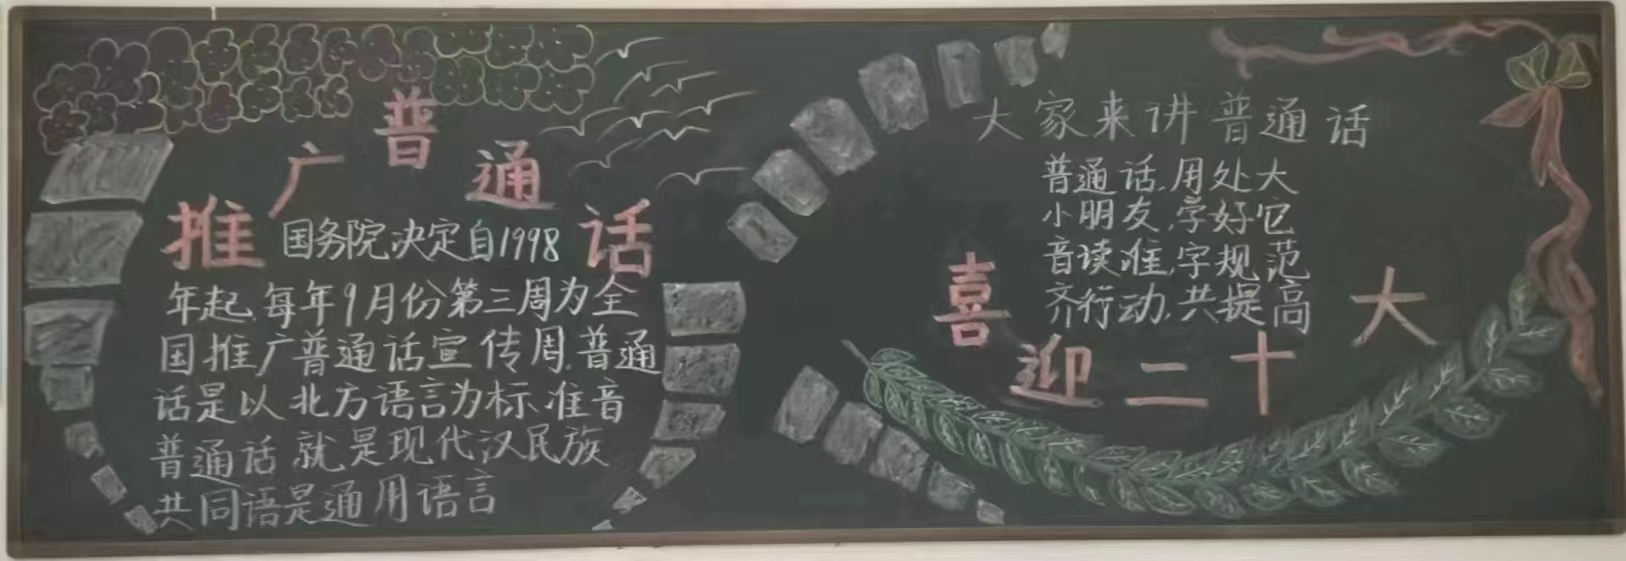 推广普通话
国务院决定自1998
年起,每年9月份第三周为全
国推广普通话宣传周,普通
话是以北方语言为标准音
普通话就是现代汉民族
共同语是通用语言
大家来讲普通话
普通话,用处大
小朋友,学好它
音读准,字规范
齐行动,共提高
喜迎二十大